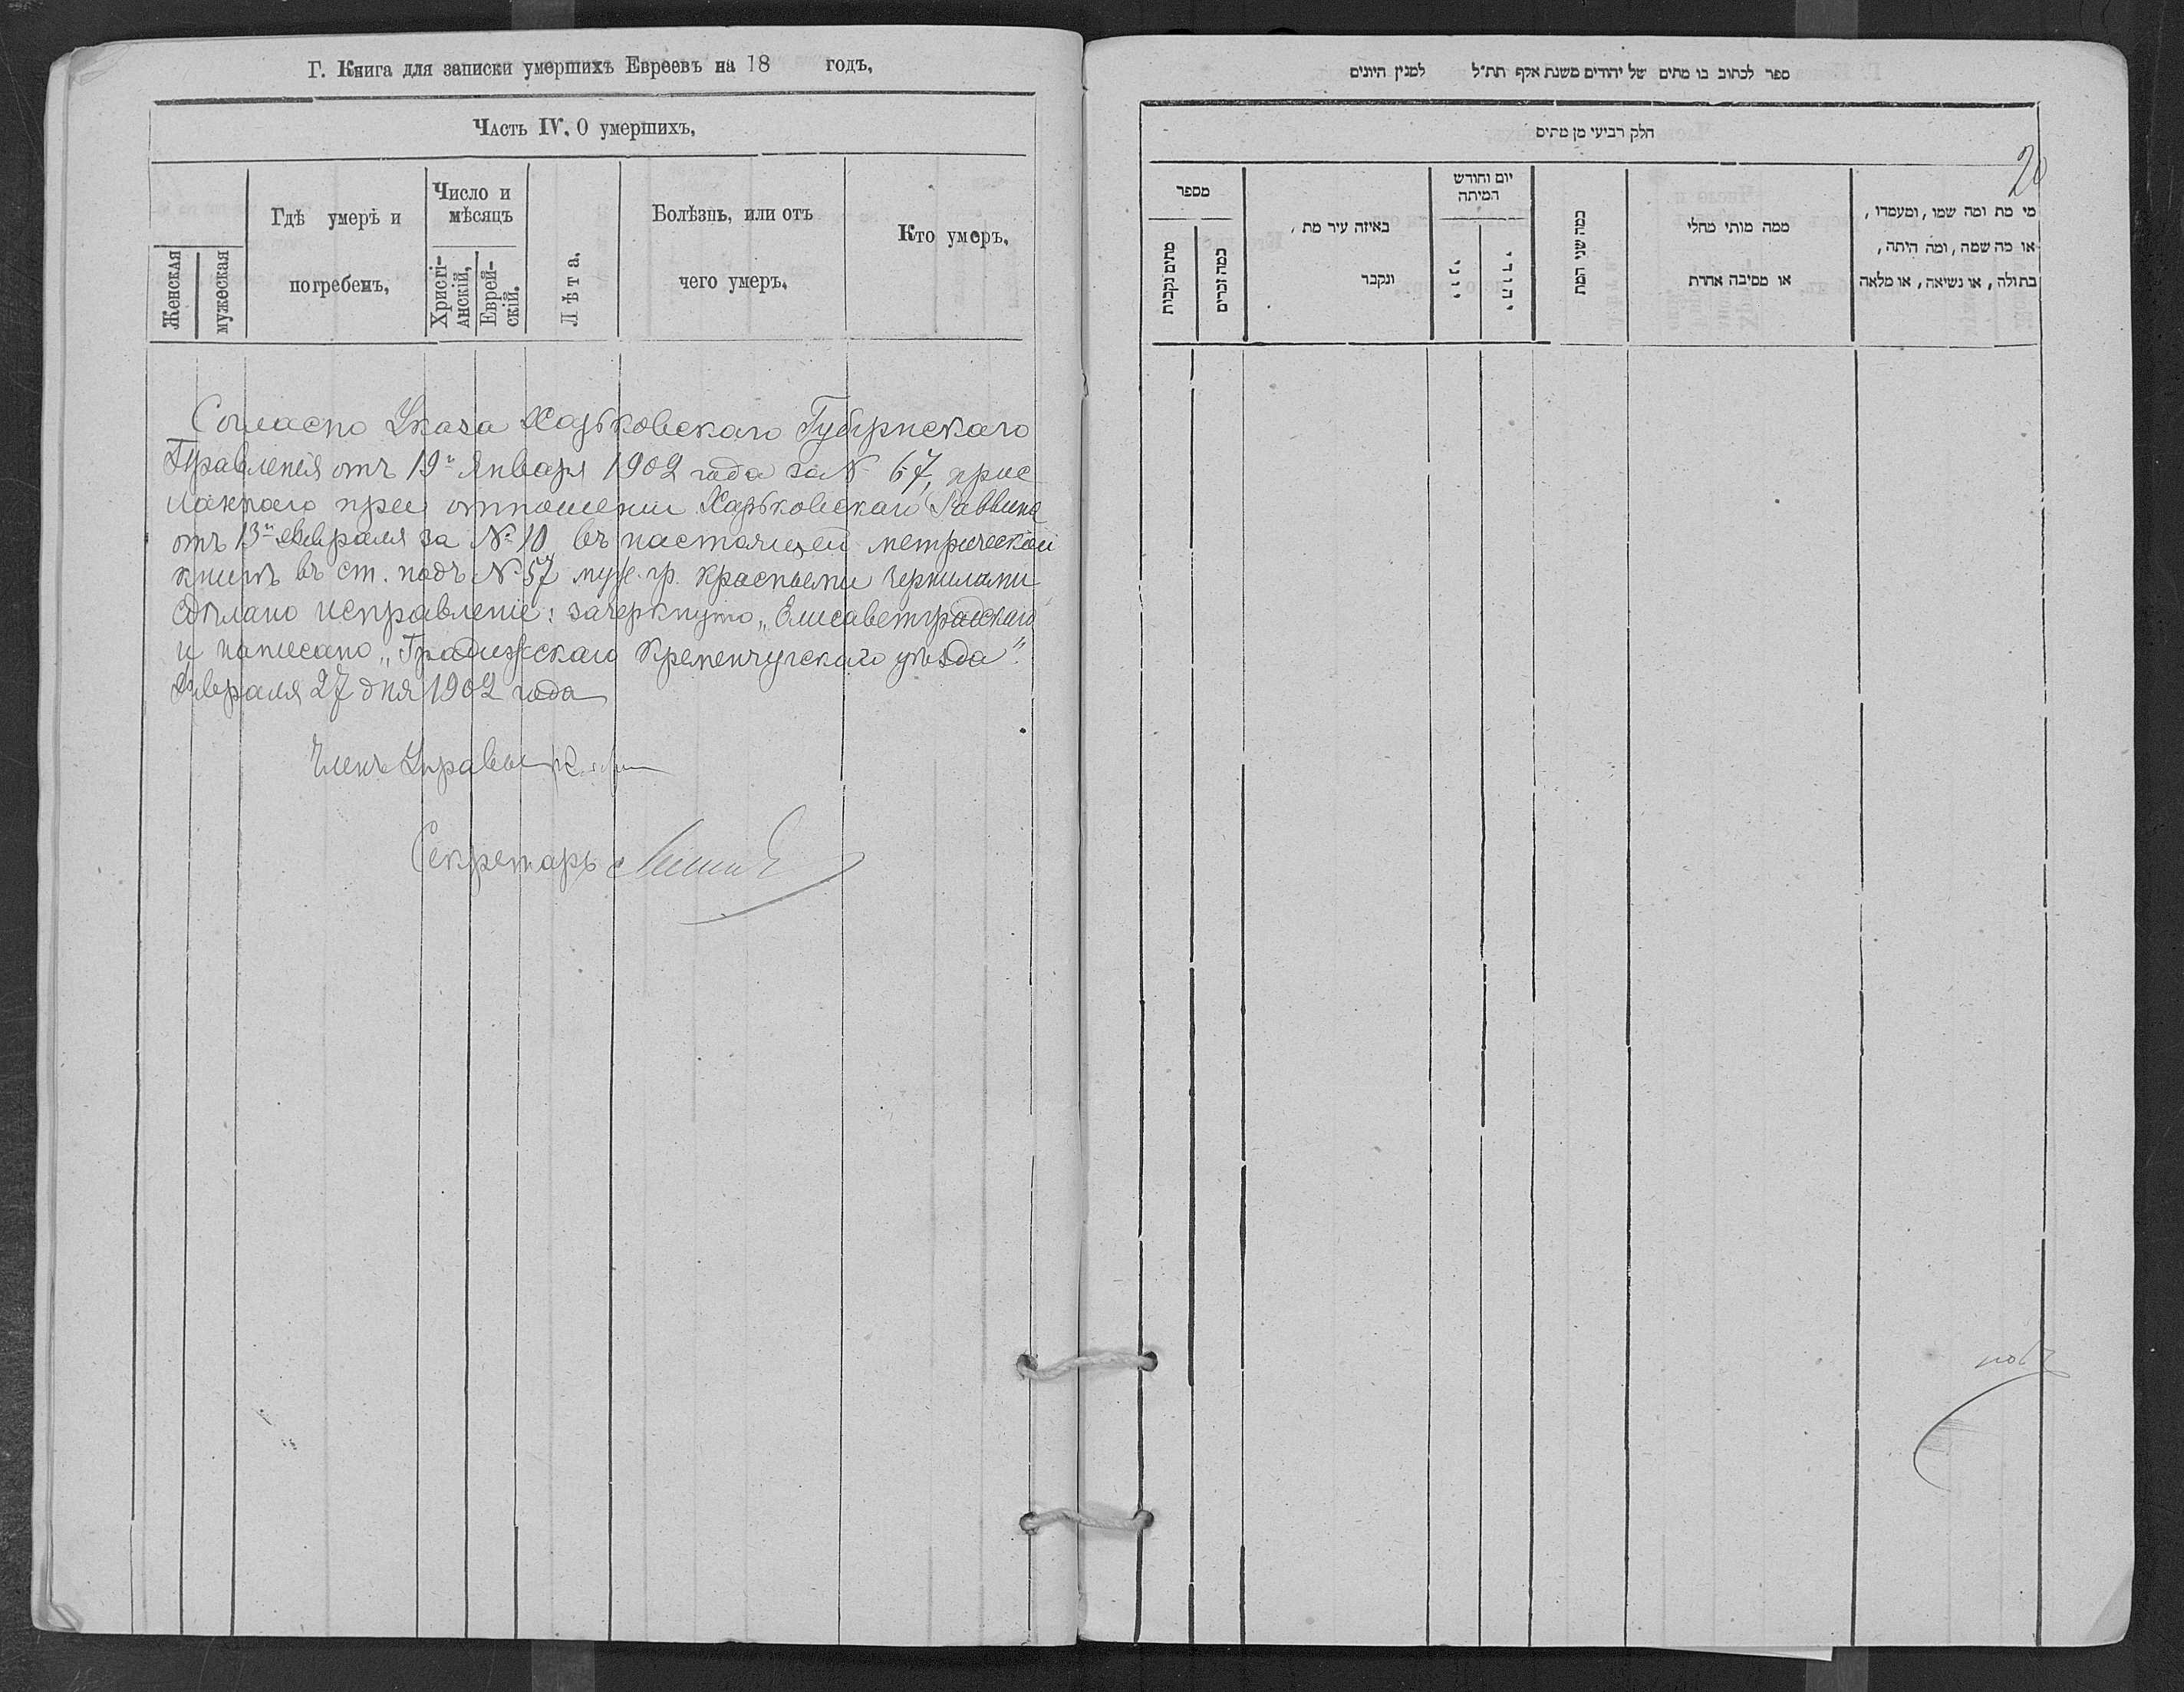 Г. Книга для записки умершихъ Евреевъ на 18 годъ.
Часть IV. О умершихъ.
Женская
мужеская
Гдѣ умерѣ и
погребенъ.
Число и
мѣсяцъ
Христі-
анскій.
Еврей-
скій.
Лѣта.
Болѣзнь, или отъ
чего умеръ.
Кто умеръ.
Согласно Указа Харьковскаго Губернскаго
Правленія отъ 19го Января 1902 года за № 67, прис
ланнаго при отношеніи Харьковскаго Раввина
отъ 13го Февраля за № 10 въ настоящей метрической
книгѣ въ ст. подъ № 57 муж. гр. красными чернилами
сдѣлано исправленіе: зачеркнуто „Елисаветградскаго"
и написано „Градижскаго Кременчугскаго уѣзда".
Февраля 27 дня 1902 года
Членъ Управы
Секретарь
ספר לכתוב בו מתים של יהודים משנת אלף תת״ל למנין היונים
חלק רביעי מן מתים
20
מספר
מתים נקבות
כמה זכרים
באיזה עיר מת,
ונקבר
יום וחודש
המיתה
יוני
יהודי
כמה שני המת
ממה מותי מחלי
או מסיבה אחרת
מי מת ומה שמו, ומעמדו,
או מה שמה, ומה היתה,
בתולה, או נשיאה, או מלאה